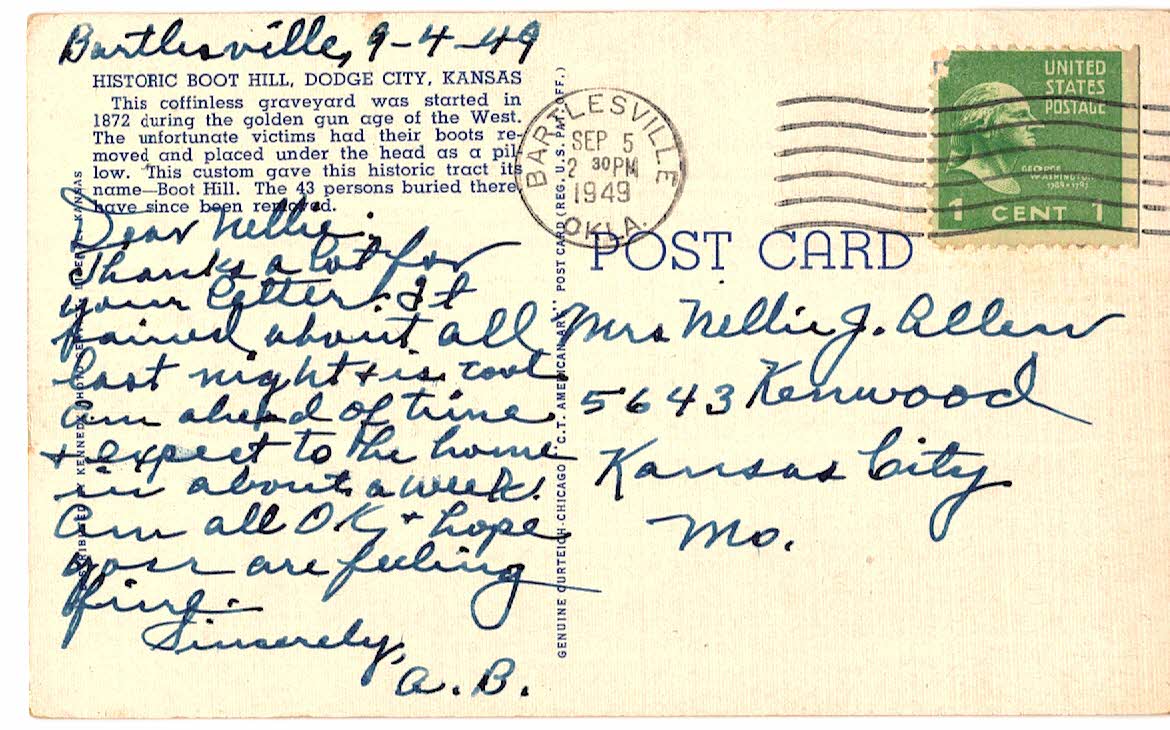 Bartlesville, 9-4-49
HISTORIC BOOT HILL, DODGE CITY, KANSAS
This coffinless graveyard was started in
1872 during the golden gun age of the West.
The unfortunate victims had their boots re-
moved and placed under the head as a pil-
low. This custom gave this historic tract its
name—Boot Hill. The 43 persons buried there
have since been removed.
Dear Nellie:
Thanks a lot for
your letter. It
rained about all
last night & is cool
Am ahead of time
& expect to be home
in about a week.
Am all OK & hope
your are feeling
fine.
Sincerely,
A. B.
KENNEDY
KANSAS
GENUINE CURTEICH-CHICAGO "C.T. AMERICAN ART" POST CARD (REG. U.S. PAT. OFF.)
BARTLESVILLE
SEP 5
2 30PM
1949
OKLA.
UNITED
STATES
POSTAGE
GEORGE
WASHINGTON
1789-1797
1 CENT 1
POST CARD
Mrs Nellie J. Allen
5643 Kenwood
Kansas City
Mo.